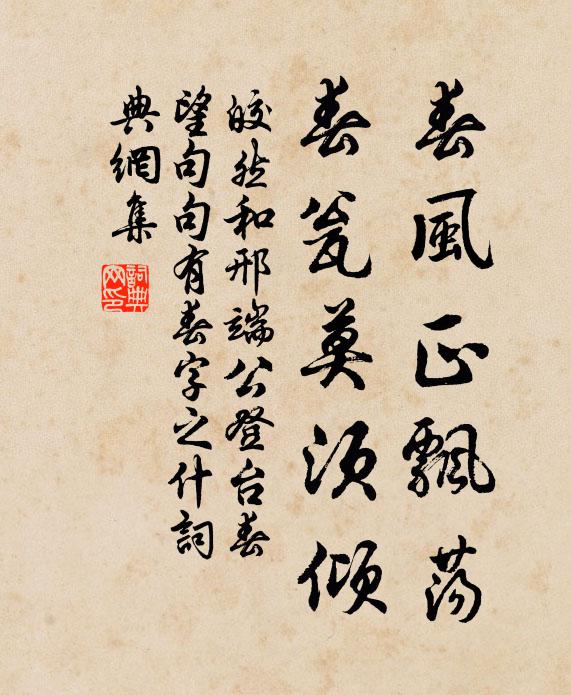 春風正飄蕩
春瓮莫須傾
皎然和邢端公登台春
望句句有春字之什詞
典網集
詞典网印